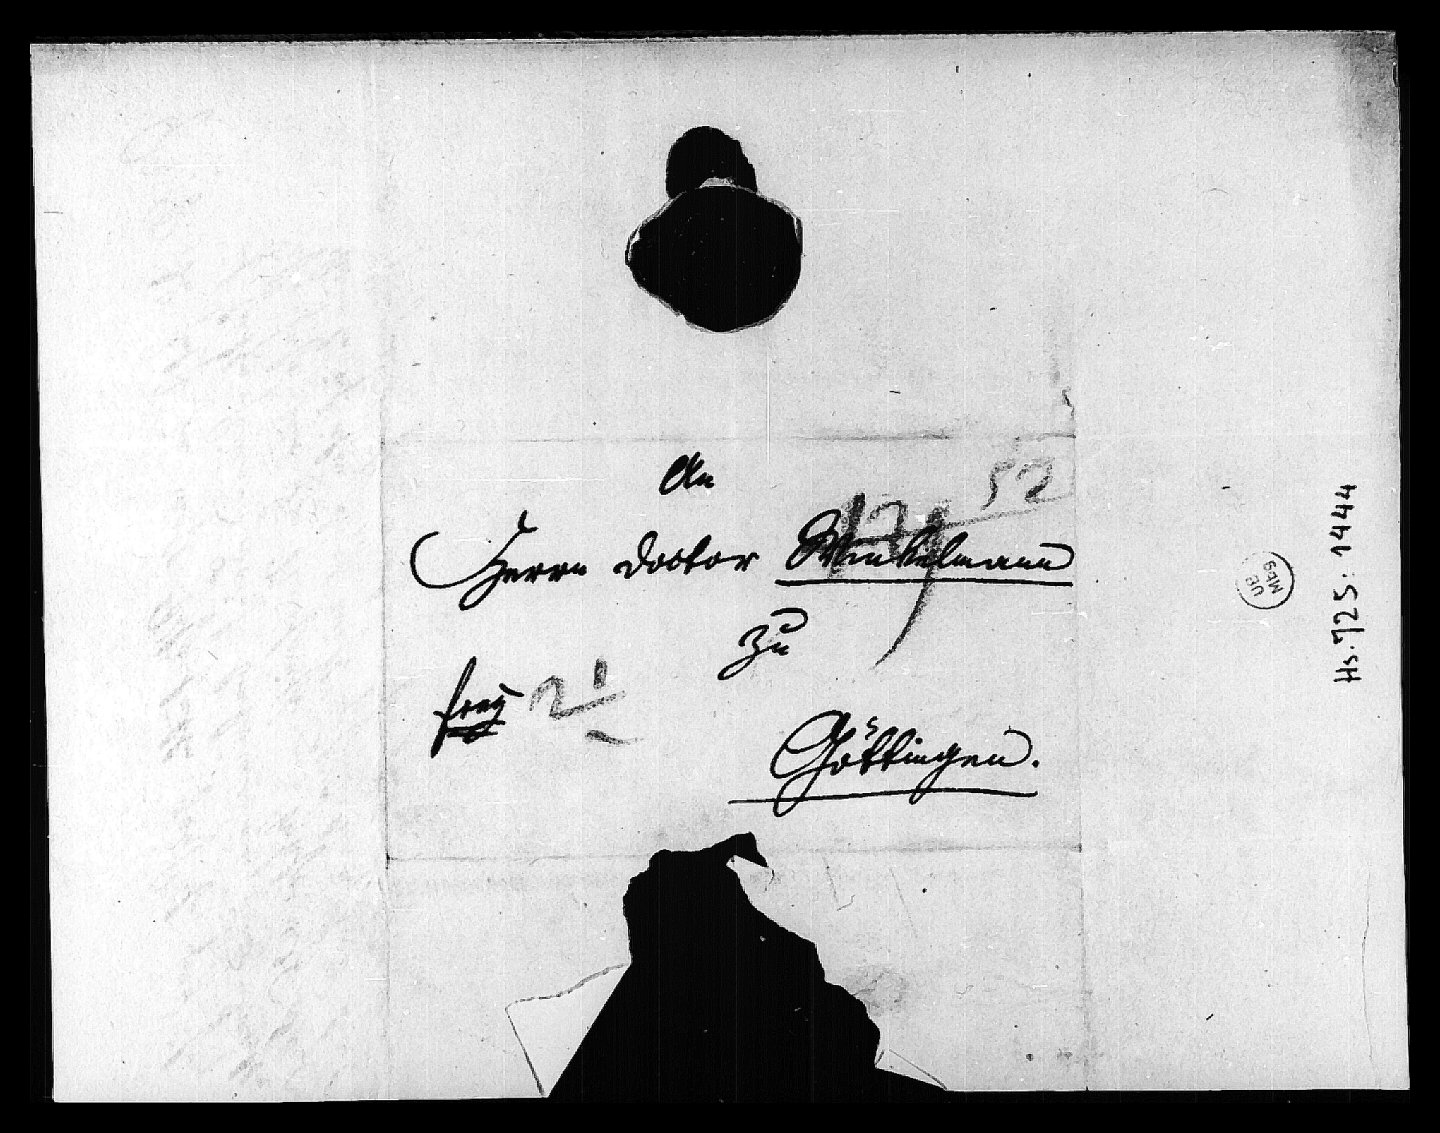 An
Herrn Doctor Winkelmann
zu
frey
Göttingen.
52
21
Hs. 725: 1444
UB
Mbg